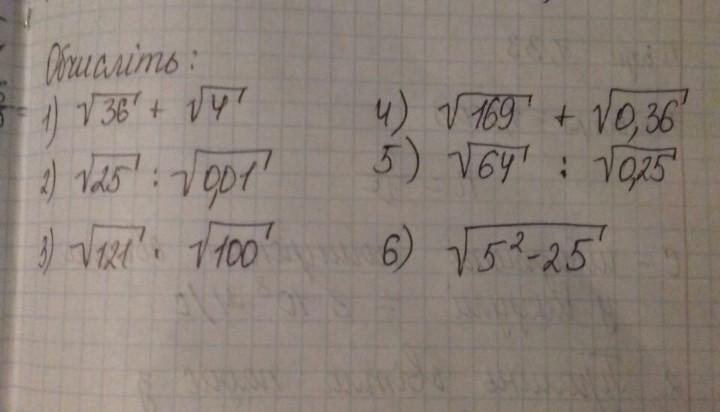 Обчисліть:
1) √36 + √4
2) √25 : √0,01
3) √121 · √100
4) √169 + √0,36
5) √64 : √0,25
6) √5²-25